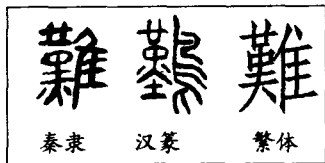 難 難 難
秦隶 汉篆 繁体